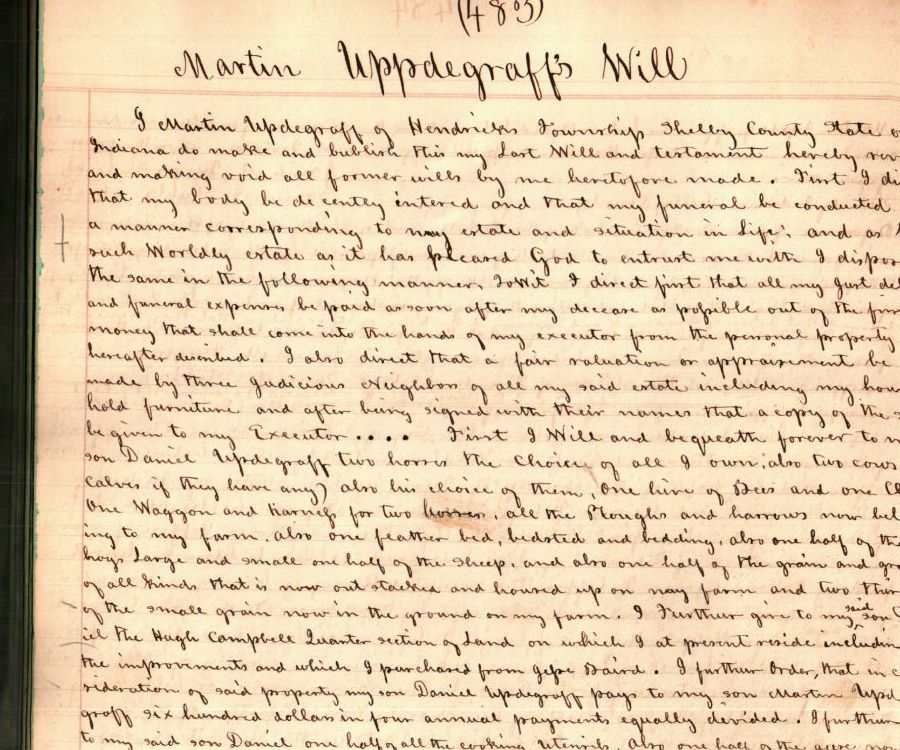 (483)
Martin Uppdegraff's Will
I Martin Updegraff of Hendricks Township Shelby County State o
Indiana do make and bublish this my Last Will and testament hereby rev
and making void all former wills by me heretofore made. First I di
that my body be decentey intered and that my funeral be conducted
a manner corresponding to my estate and situation in Life; and as
such Worldly estate as it has pleased God to entrust me with I dispos
the same in the following manner, ToWit I direct first that all my Just de
and funeral expenses be paid as soon after my decease as possible out of the
money that shall come into the hands of my executor from the personal property
hereafter described. I also direct that a fair valuation or appraisement be
made by three Judicious Neighbors of all my said estate including my hou
hold furniture and after being signed with their names that a copy of the s
be given to my Executor.... First I Will and bequeath forever to m
son Daniel Updegraff two horses the choice of all I own, also two cows
calves if they have any) also his choice of them, One hive of Bees and one Cl
One Waggon and Harness for two horses, all the Ploughs and harrows now bel
ing to my farm. also one feather bed, bedsted and bedding, also one half of the
hogs Large and small one half of the sheep, and also one half of the grain and gr
of all kinds that is now out stacked and housed up on my farm and two thir
of the small grain now in the ground on my farm. I Furthur give to my said son
iel the Hugh Campbell Quarter section of Land on which I at present reside includin
the improvements and which I purchased from Jesse Baird. I furthur Order, that in c
sideration of said property my son Daniel Updegraff pays to my son Martin Upd
graff six hundred dollars in four annual payments equally devided. I furthur
to my said son Daniel one half of all the cooking utensils, Also one half of the